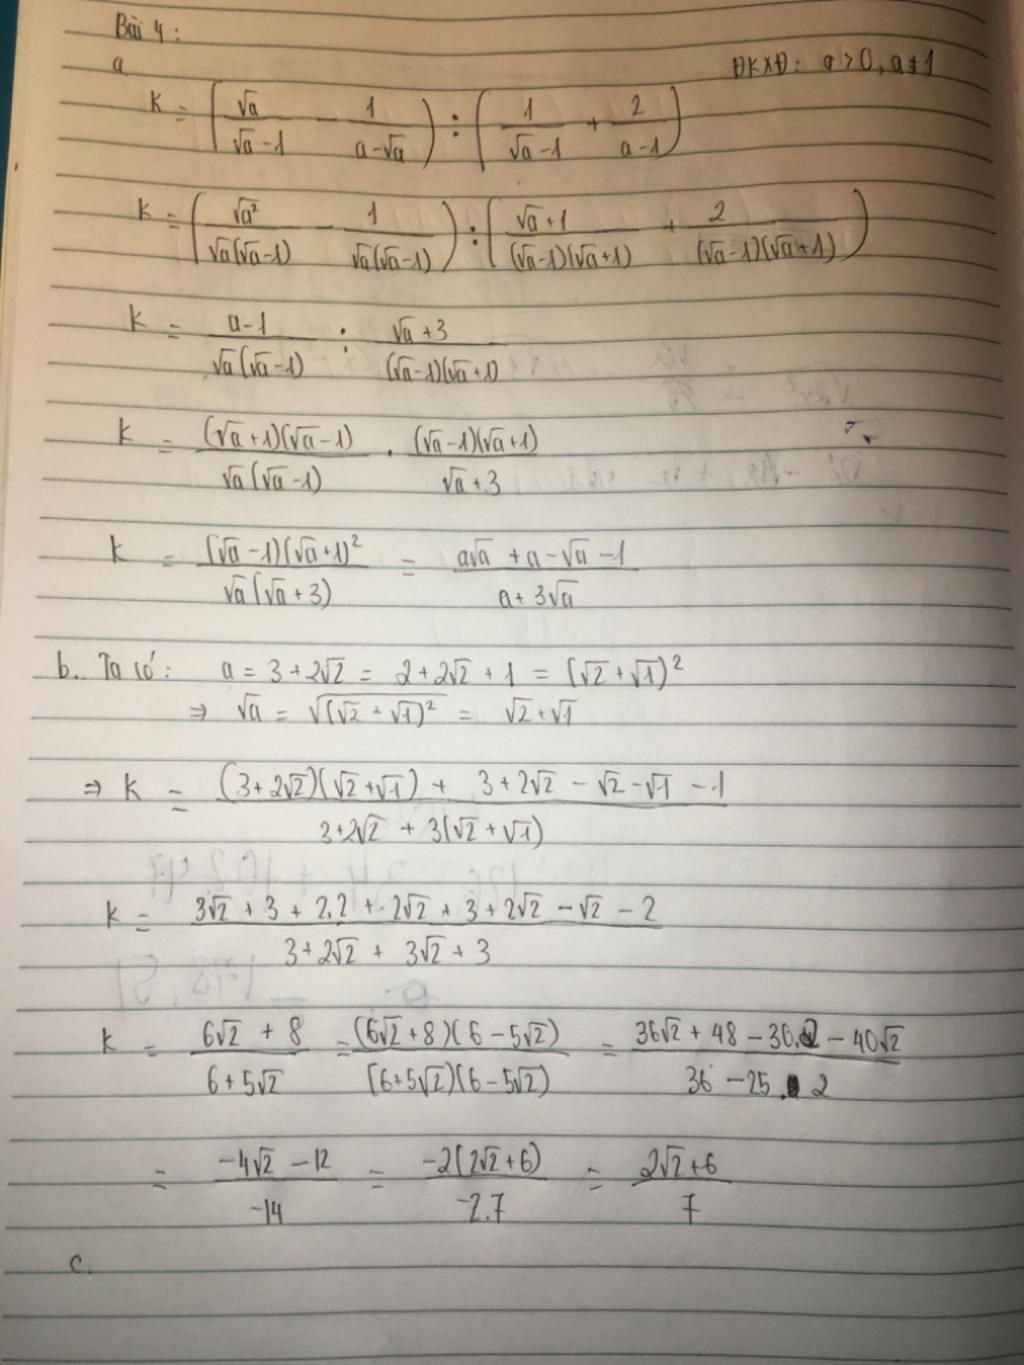 Bài 4:
a ĐKXĐ: a > 0, a ≠ 1
K = (√a/(√a-1) - 1/(a-√a)) : (1/(√a-1) + 2/(a-1))
K = (√a²/(√a(√a-1)) - 1/(√a(√a-1))) : ((√a+1)/((√a-1)(√a+1)) + 2/((√a-1)(√a+1)))
K = (a-1)/(√a(√a-1)) : (√a+3)/((√a-1)(√a+1))
K = ((√a+1)(√a-1))/(√a(√a-1)) . ((√a-1)(√a+1))/(√a+3)
K = ((√a-1)(√a+1)²)/(√a(√a+3)) = (a√a + a - √a - 1)/(a+3√a)
b. Ta có: a = 3+2√2 = 2+2√2+1 = (√2+√1)²
⇒ √a = √((√2+√1)²) = √2+√1
⇒ K = ((3+2√2)(√2+√1) + 3+2√2 - √2 - √1 - 1)/(3+2√2 + 3(√2+√1))
K = (3√2 + 3 + 2.2 + 2√2 + 3 + 2√2 - √2 - 2)/(3+2√2 + 3√2 + 3)
K = (6√2 + 8)/(6+5√2) = ((6√2+8)(6-5√2))/((6+5√2)(6-5√2)) = (36√2 + 48 - 30.2 - 40√2)/(36 - 25.2)
= (-4√2 - 12)/(-14) = (-2(2√2+6))/(-2.7) = (2√2+6)/7
c.